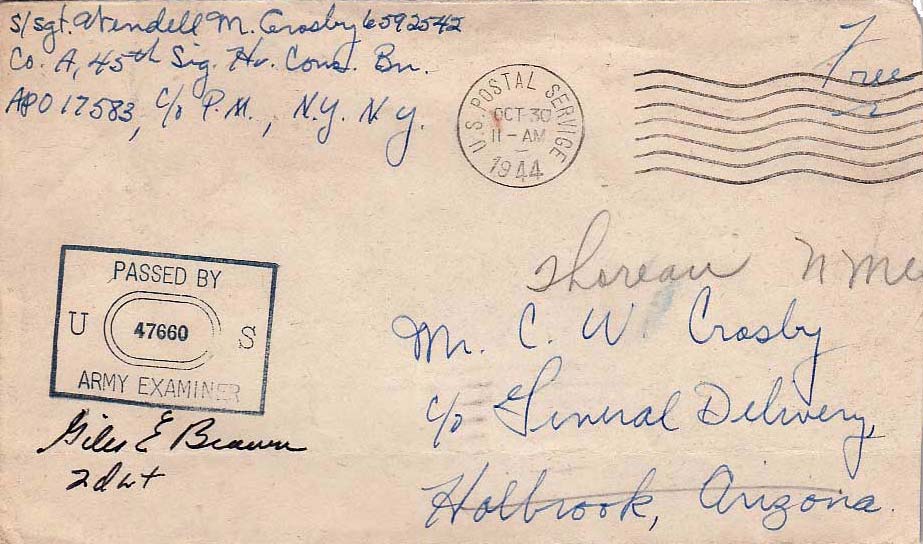 S/Sgt. Wendell M. Crosby 6592542
Co. A, 45th Sig. Hv. Cons. Bn.
APO 17583, c/o P.M., N.Y. N.Y.
Free
U.S. POSTAL SERVICE
OCT 30
11-AM
1944
Thoreau N Me
PASSED BY
U 47660 S
ARMY EXAMINER
Giles E
2d Lt
Mr. C. W. Crosby
c/o General Delivery,
Holbrook, Arizona.